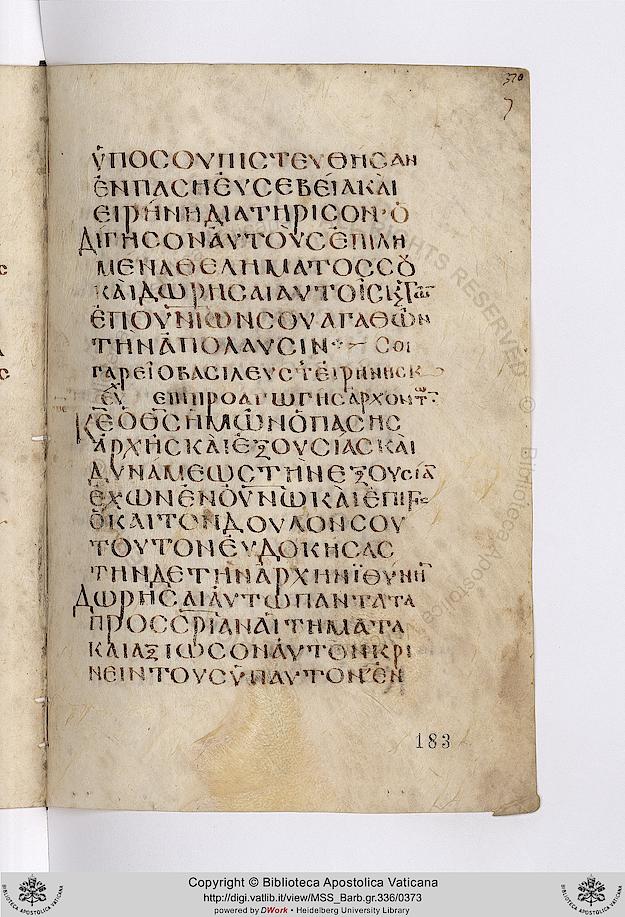 370
ὙΠΟСΟΥΠΙСΤΕΥΘΗСΑΝ
ἘΝΠΑСΗἘΥСΕΒΕΊΑΚΑῚ
ΕΙΡΉΝΗΔΙΑΤΗΡΙСΟΝ·Ὁ
ΔΙΓΗСΟΝἈΥΤΟῪСἘΠΙΛΗ
ΜΕΝΑΘΕΛΗΜΑΤΟССȢ
ΚΑῚΔΩΡΗСΑΙΑΥΤΟΙС
ἘΠΟΥΝΙΩΝСΟΥΑΓΑΘΩΝ
ΤΗΝἈΠΟΛΑΥСΙΝ СΟΙ
ΓΑΡΕἶΟΒΑСΙΛΕΥСΤ ΕἸΡΗΝΗСΚ
ΕΥ ΕΠΙΠΡΟΑΓΩΓΗСἈΡΧΟΝΤ
ΚΕὉΘСἩΜΩΝὉΠΑСΗС
ἈΡΧΗСΚΑῚἘΞΟΥСΙΑСΚΑΙ
ΔΥΝΆΜΕΩСΤῊΝἘΞΟΥСΙΑ
ἘΧΩΝἘΝΟΥΝΩΚΑΙἘΠΙΓ
ὉΚΑΙΤΟΝΔΟΥΛΟΝСΟΥ
ΤΟΥΤΟΝἘΥΔΟΚΗСΑС
ΤΗΝΔΕΤΗΝἈΡΧΗΝΪΘΥΝΙΝ
ΔΩΡΗСΑΙΑΥΤΩΠΑΝΤΑΤΑ
ΠΡΟССΡΙΑΝΑΙΤΗΜΑΤΑ
ΚΑΙΑΞΙΩСΟΝἈΥΤΟΝΚΡΙ
ΝΕΙΝΤΟΥСΥΠΑΥΤΟΝἘΝ
183
Copyright © Biblioteca Apostolica Vaticana
http://digi.vatlib.it/view/MSS_Barb.gr.336/0373
powered by DWork • Heidelberg University Library